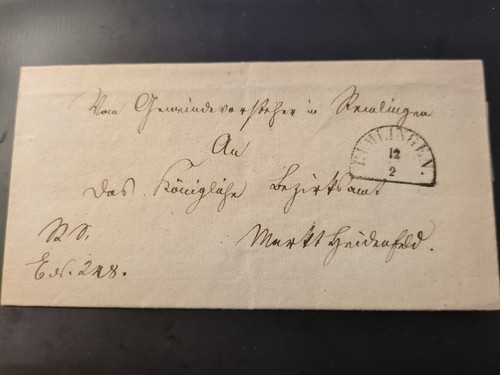 Vom Gemeindevorsteher in Remlingen
An
REMLINGEN.
12
2
das Königliche Bezirksamt
Markt Heidenfeld.
E. N. 248.